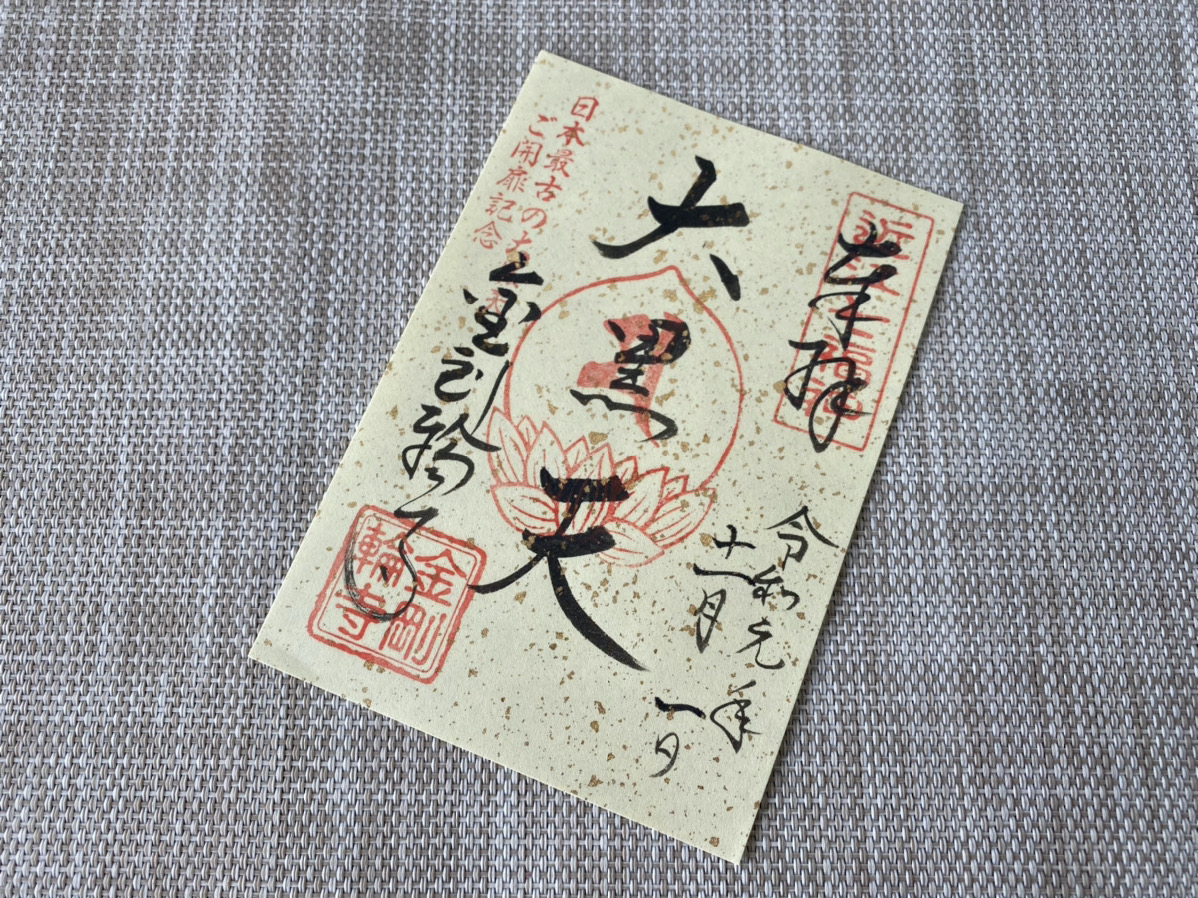 奉拝
令和元年
十一月一日
大黒天
日本最古の大
ご開扉記念
金剛輪寺
金剛
輪寺